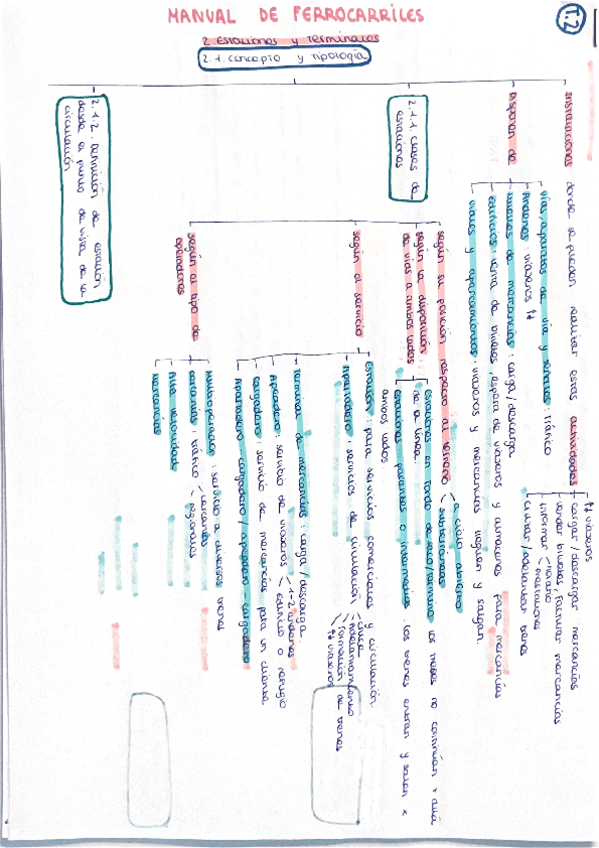 T.2
MANUAL DE FERROCARRILES
2. Estaciones y Terminales
2.1. concepto y tipología
Instalaciones donde se pueden realizar estas actividades
↑↓ viajeros
cargar/descargar mercancías
vender billetes, facturar mercancías
informar
horario
mercancías
cruzar/adelantar trenes
Disponen de
vías, aparatos de vía y señales: tráfico
Andenes: viajeros ↑↓
muelles de mercancías: carga/descarga
Edificios: venta de billetes, espera de viajeros y almacenes para mercancías
viales y aparcamientos: viajeros y mercancías lleguen y salgan.
2.1.1. Clases de
estaciones
según su posición respecto al terreno
a cielo abierto
subterráneas
según la disposición
de vías a ambos lados
Estaciones en fondo de saco/término: las líneas no continúan + allá
de la línea.
Estaciones pasantes o intermedias: los trenes entran y salen x
ambos lados
según el servicio
Estación: para servicios comerciales y circulación.
Apartadero: servicios de circulación
cruce
Adelantamiento
Formación de trenes
↑↓ viajeros
Terminal de mercancías: carga/descarga
Apeadero: servicio de viajeros
1-2 andenes
edificio o refugio
Cargadero: servicio de mercancías para un cliente
Apartadero-cargadero/apeadero-cargadero
según el tipo de
operadores
Multioperación: servicio a diversos trenes
cercanías: tráfico
cercanías
regionales
Alta velocidad
Mercancías
2.1.2. Definición de estación
desde el punto de vista de la
circulación